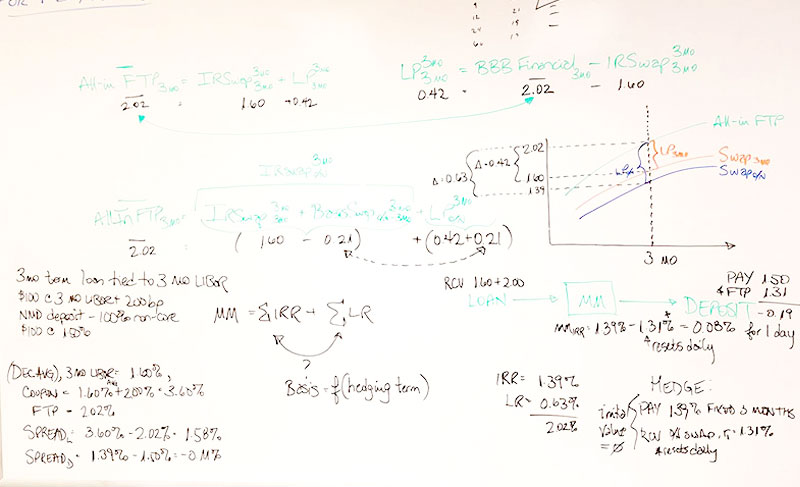 9 21
12 15
24 19
60
All-in FTP3MO = IRSwap 3MO 3MO + LP 3MO
2.02 = 1.60 + 0.42
LP 3MO 3MO = BBB Financial 3MO - IRSwap 3MO 3MO
0.42 = 2.02 - 1.60
All-in FTP
2.02
Δ=0.42
Δ=0.63
1.60
1.39
LP3MO
LPO/N
Swap 3MO
SwapO/N
3 MO
IRSwap 3MO O/N
All In FTP3MO = IRSwap 3MO 3MO + BasisSwap 3MO O/N 3MO + LP 3MO O/N
2.02 = (1.60 - 0.21) + (0.42+0.21)
3mo term loan tied to 3 MO LIBOR
$100 @ 3 MO LIBOR + 200bp
NMD deposit - 100% non-core
$100 @ 1.50%
MM = Σ IRR + Σ LR
?
Basis = f(hedging term)
RCV 1.60 + 2.00
LOAN → MM → DEPOSIT
PAY 1.50
FTP 1.31
-0.19
for 1 day
MM IRR = 1.39% - 1.31%* = 0.08%
*resets daily
(DEC AVG), 3 MO LIBOR = 1.60%,
COUPON = 1.60% + 2.00% = 3.60%
FTP = 2.02%
SPREADL = 3.60% - 2.02% = 1.58%
SPREADD = 1.39% - 1.50% = -0.11%
IRR = 1.39%
LR = 0.63%
2.02%
HEDGE:
initial value = Ø
PAY 1.39% FIXED 3 MONTHS
RCV O/N SWAP, = 1.31%
*resets daily